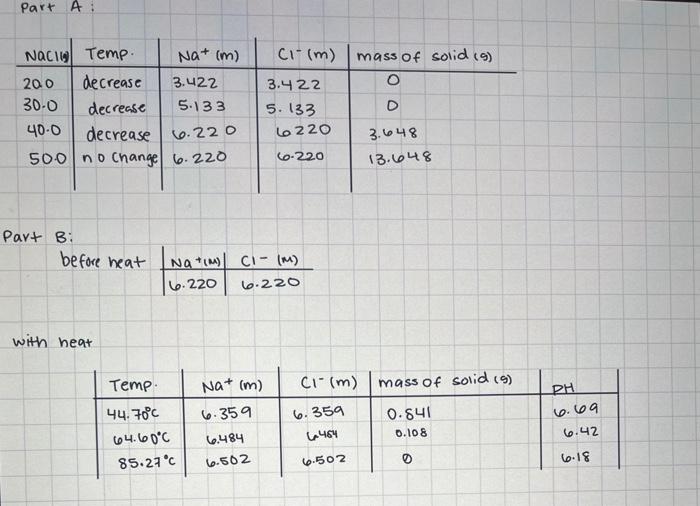 Part A:
NaCl(g) Temp. Na+ (m) Cl- (m) mass of solid (g)
20.0 decrease 3.422 3.422 0
30.0 decrease 5.133 5.133 0
40.0 decrease 6.220 6220 3.648
500 no change 6.220 6.220 13.648
Part B:
before heat Na+(M) Cl- (M)
6.220 6.220
with heat
Temp. Na+ (m) Cl- (m) mass of solid (g) PH
44.70°C 6.359 6.359 0.841 6.69
64.60°C 6.484 6.484 0.108 6.42
85.27°C 6.502 6.502 0 6.18